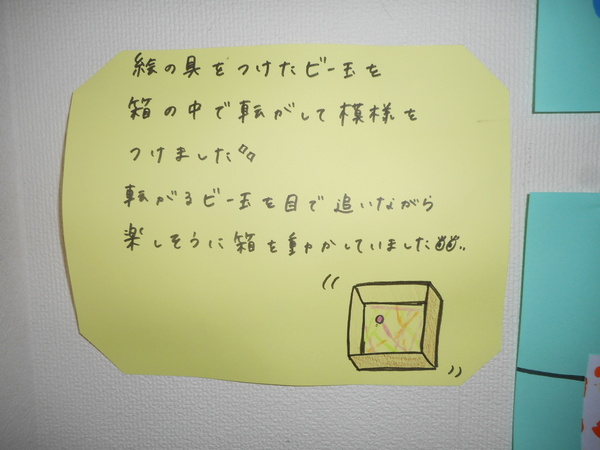 絵の具をつけたビー玉を
箱の中で転がして模様を
つけました
転がるビー玉を目で追いながら
楽しそうに箱を動かしていました